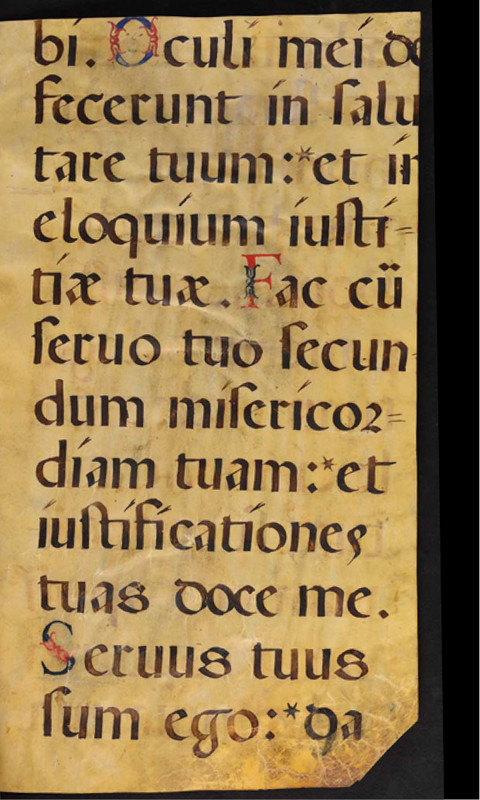 bi. Oculi mei de
fecerunt in ſalu
tare tuum:*et in
eloquium iuſti=
tiæ tuæ. Fac cū
ſeruo tuo ſecun
dum miſericor=
diam tuam:*et
iuſtificationes
tuas doce me.
Seruus tuus
ſum ego:*da